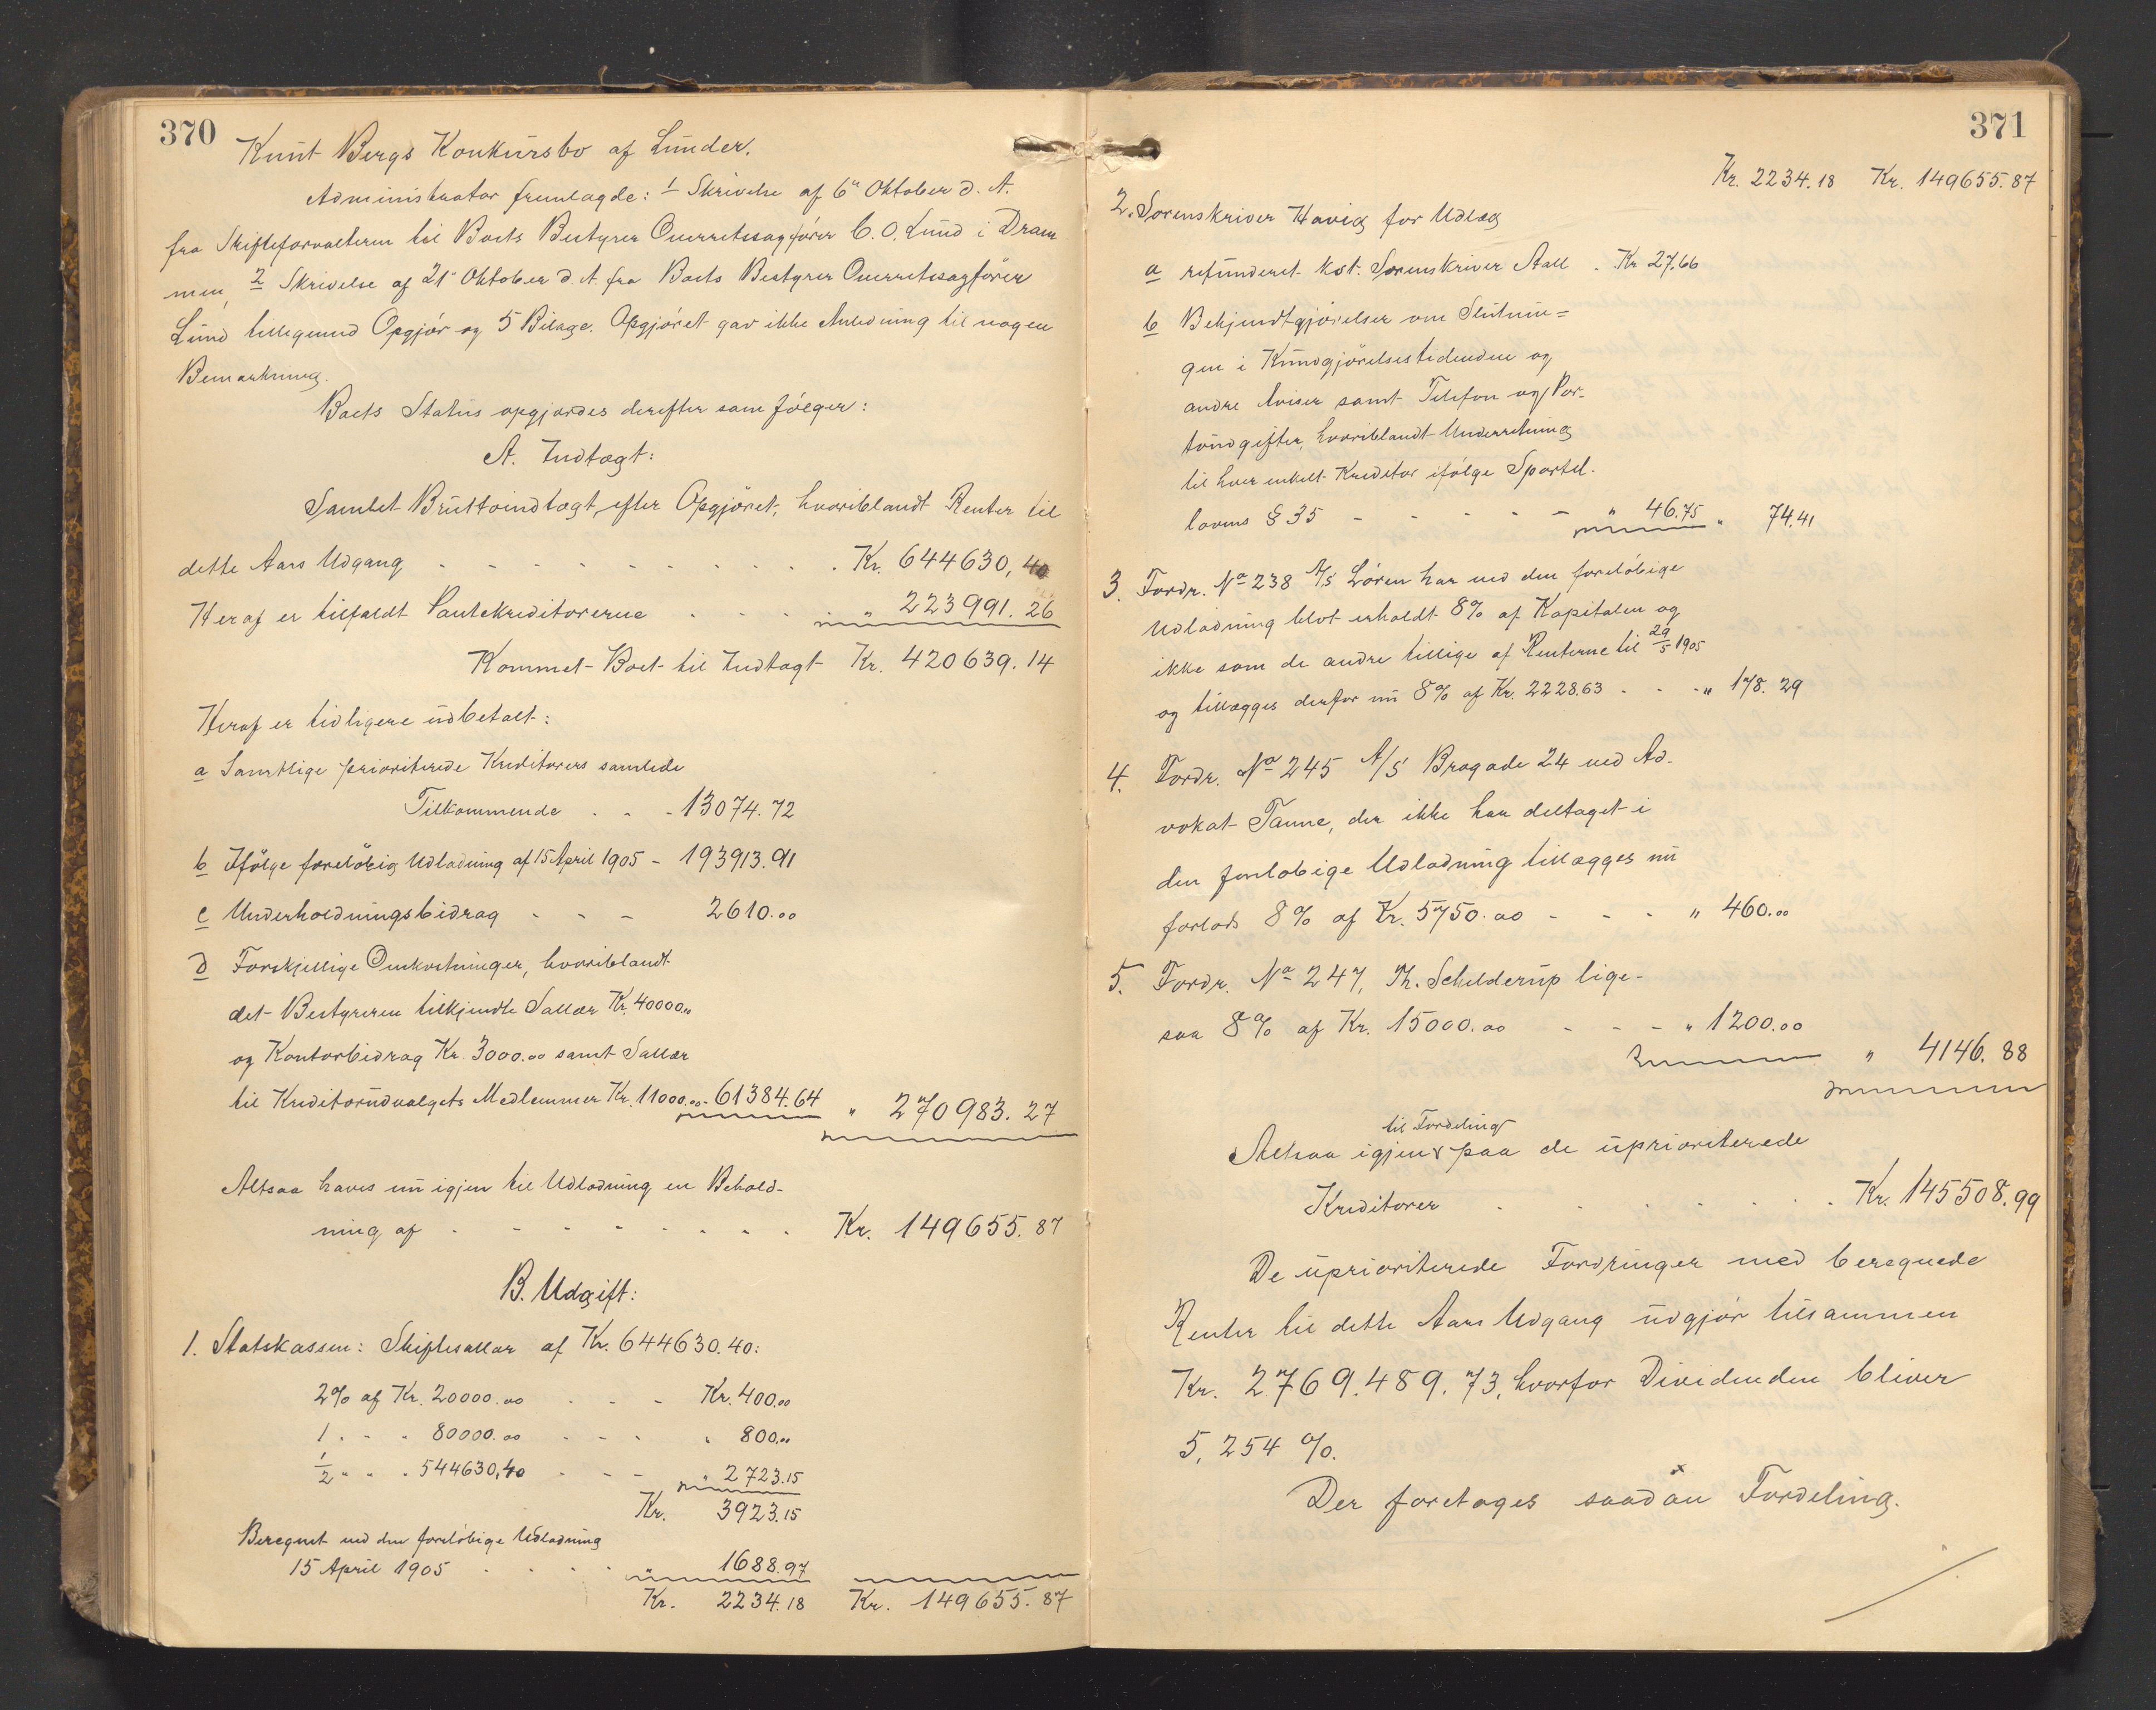 370
Knut Bergs Konkursbo af Lunder.
Administrator fremlagde: 1 Skrivelse af 6te Oktober d. A.
fra Skifteforvalteren til Boets Bestyrer Overretssagfører C. O. Lund i Dram
men, 2 Skrivelse af 21 Oktober d. A. fra Boets Bestyrer Overretssagfører
Lund tillegemed Opgjør og 5 Bilage. Opgjøret gav ikke Anledning til nogen
Bemærkning.
Boets Status opgjordes derefter som følger:
A. Indtægt:
Samlet Bruttoindtægt efter Opgjøret, hvoriblandt Renter til
dette Aars Udgang - - - - - - - - - - Kr. 644630,40
Heraf er tilfaldt Pantekreditorerne - - - - „ 223991.26
Kommet Boet til Indtægt Kr. 420639.14
Heraf er tidligere udbetalt:
a Samtlige prioriterede Kreditorers samlede
Tilkommende - - - 13074.72
b Ifølge foreløbig Udlodning af 15 April 1905 - 193913.91
c Underholdningsbidrag - - - 2610.00
d Forskjellige Omkostninger, hvoriblandt
det Bestyreren tilkjendte Sallær Kr. 40000.00
og Kontorbidrag Kr. 3000.00 samt Sallær
til Kreditorudvalgets Medlemmer Kr. 11000.00 - 61384.64 „ 270983.27
Altsaa haves nu igjen til Udlodning en Behold-
ning af - - - - - - - - Kr. 149655.87
B. Udgift:
1. Statskassen: Skiftesallær af Kr. 644630.40:
2% af Kr. 20000.00 - - - Kr. 400.00
1 „ „ „ 80000.00 - - - „ 800.00
1/2 „ „ „ 544630,40 - - - „ 2723.15
Kr. 3923.15
Beregnet ved den foreløbige Udlodning
15 April 1905 - - - - „ 1688.97
Kr. 2234.18 Kr. 149655.87
371
Kr. 2234.18 Kr. 149655.87
2. Sorenskriver Havig for Udlæg
a refunderet kst. Sorenskriver Aall . Kr 27.66
b Bekjendtgjørelser om Slutnin=
gen i Kundgjørelsestidenden og
andre Aviser samt Telefon og Por-
toudgifter, hvoriblandt Underretning
til hver enkelt Kreditor ifølge Sportel-
lovens § 35 - - - - - „ 46.75 „ 74.41
3. Fordr. No 238 A/S Løren har ved den foreløbige
Udlodning blot erholdt 8% af Kapitalen og
ikke som de andre tillige af Renterne til 29/5 1905
og tillægges derfor nu 8% af Kr. 2228.63 - - - „ 178.29
4. Fordr. No 245 A/S Brogade 24 ved Ad-
vokat Tanne, der ikke har deltaget i
den foreløbige Udlodning tillægges nu
forlods 8% af Kr. 5750.00 - - - „ 460.00
5. Fordr. No 247, Th. Schelderup lige-
saa 8% af Kr. 15000.00 - - - „ 1200.00
„ 4146.88
Altsaa igjen til Fordeling paa de uprioriterede
Kreditorer - - - - - - Kr. 145508.99
De uprioriterede Fordringer med beregnede
Renter til dette Aars Udgang udgjør tilsammen
Kr. 2.769.489.73, hvorfor Dividenden bliver
5,254 %.
Der foretages saadan Fordeling.